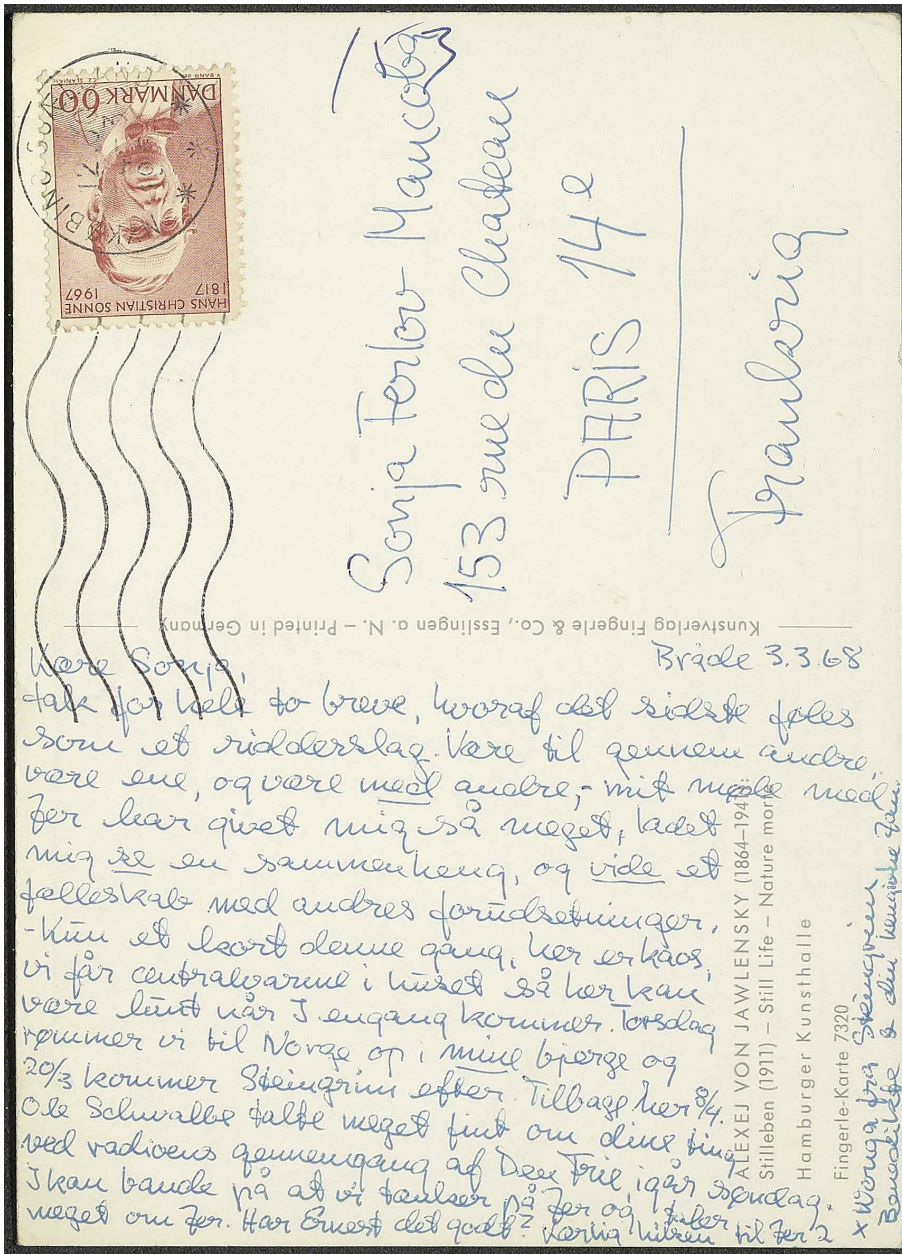 HANS CHRISTIAN SONNE
1817
1967
DANMARK 60
Sonja Ferlov Mancoba
153 rue du Chateau
PARIS 14e
Frankrig
Kunstverlag Fingerle & Co., Esslingen a. N. – Printed in Germany
Bråde 3.3.68
Kære Sonja,
tak for hele to breve, hvoraf det sidste føles
som et ridderslag. Være til gennem andre,
være ene, og være med andre, – mit møde med
Jer har givet mig så meget, ladet
mig se en sammenheng, og vide et
fælleskab med andres forudsetninger.
– Kun et kort denne gang, her er kaos,
vi får centralvarme i huset så her kan
være lunt når I engang kommer. Torsdag
rømmer vi til Norge op i mine bjerge og
20/3 kommer Steingrim efter. Tilbage her 8/4.
Ole Schwalbe talte meget fint om dine ting
ved radioens gennemgang af Den Frie, igår søndag.
I kan bande på at vi tænker på Jer og taler
meget om Jer. Har Ernest det godt? Kærlig hilsen til Jer 2
x Wonga fra Steingrim
Benedikte & din hengivne
ALEXEJ VON JAWLENSKY (1864–1941)
Stilleben (1911) – Still Life – Nature morte
Hamburger Kunsthalle
Fingerle-Karte 7320